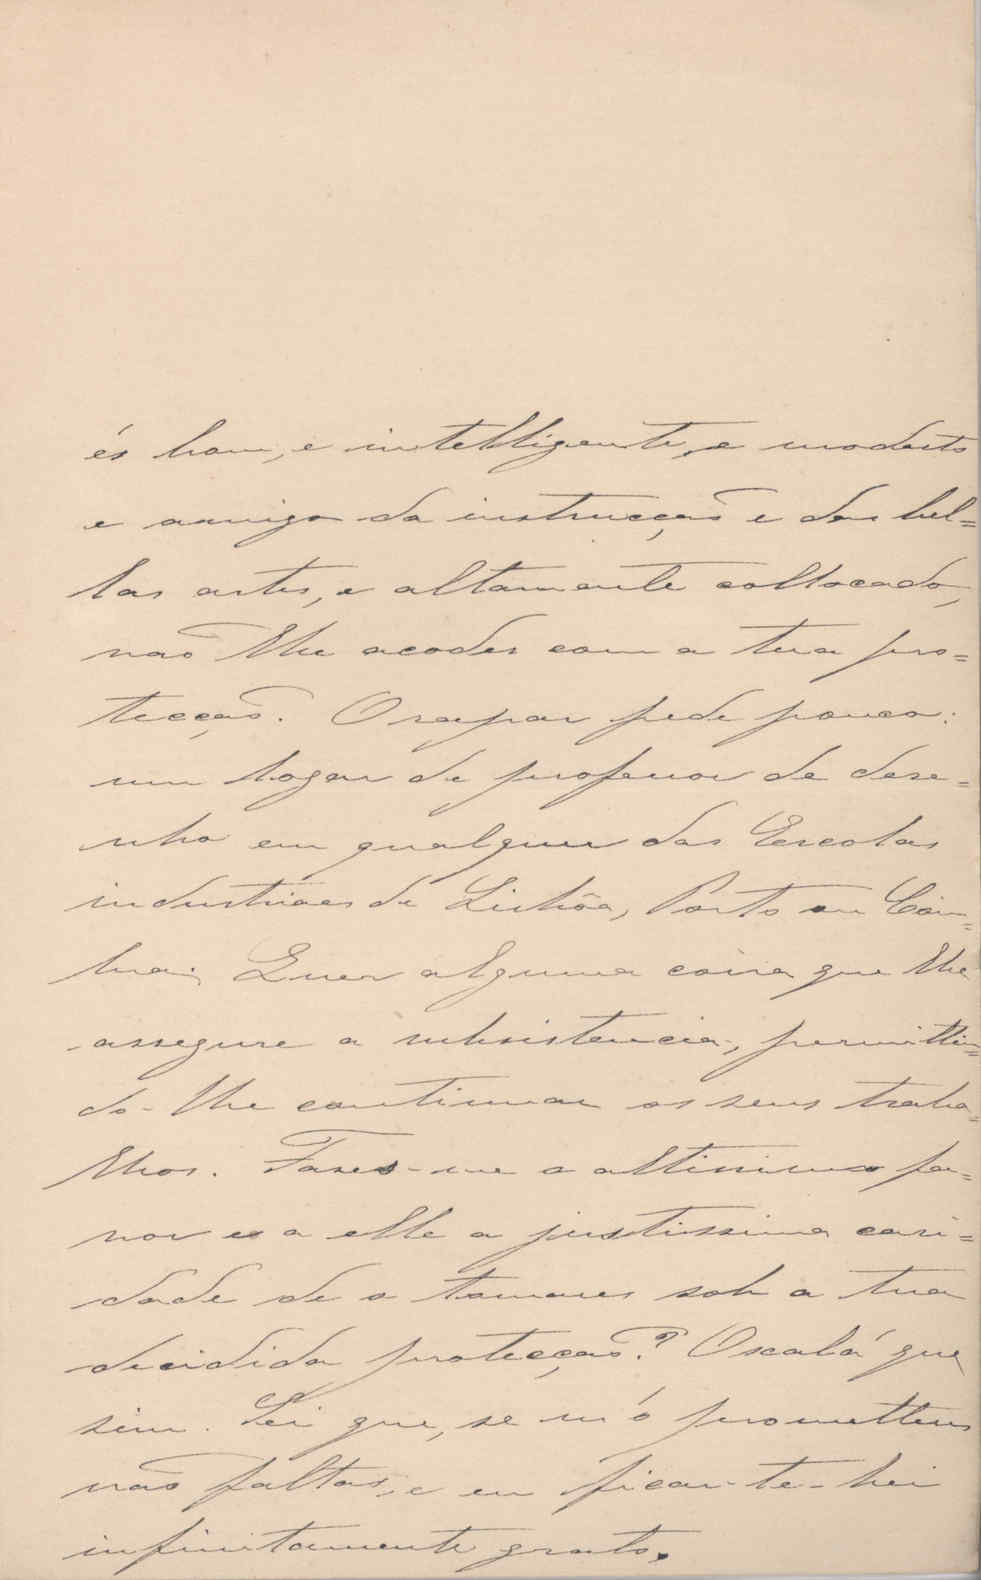 és bom, e intelligente, e modesto
e amigo da instrucção e das bel=
las artes, e altamente collocado,
não lhe acodes com a tua pro=
tecção. O rapaz pede pouco:
um logar de professor de dese=
nho em qualquer das Escolas
industriaes de Lisbôa, Porto ou Coim=
bra; Quer alguma coisa que lhe
assegure a subsistencia, permittin=
do-lhe continuar os seus traba=
lhos. Fazes-me o altissimo fa=
vor e a elle a justissima cari=
dade de o tomares sob a tua
decidida protecção? Oxalá que
sim. Sei que, se m'o prometteres
não faltas, e eu ficar-te-hei
infinitamente grato.